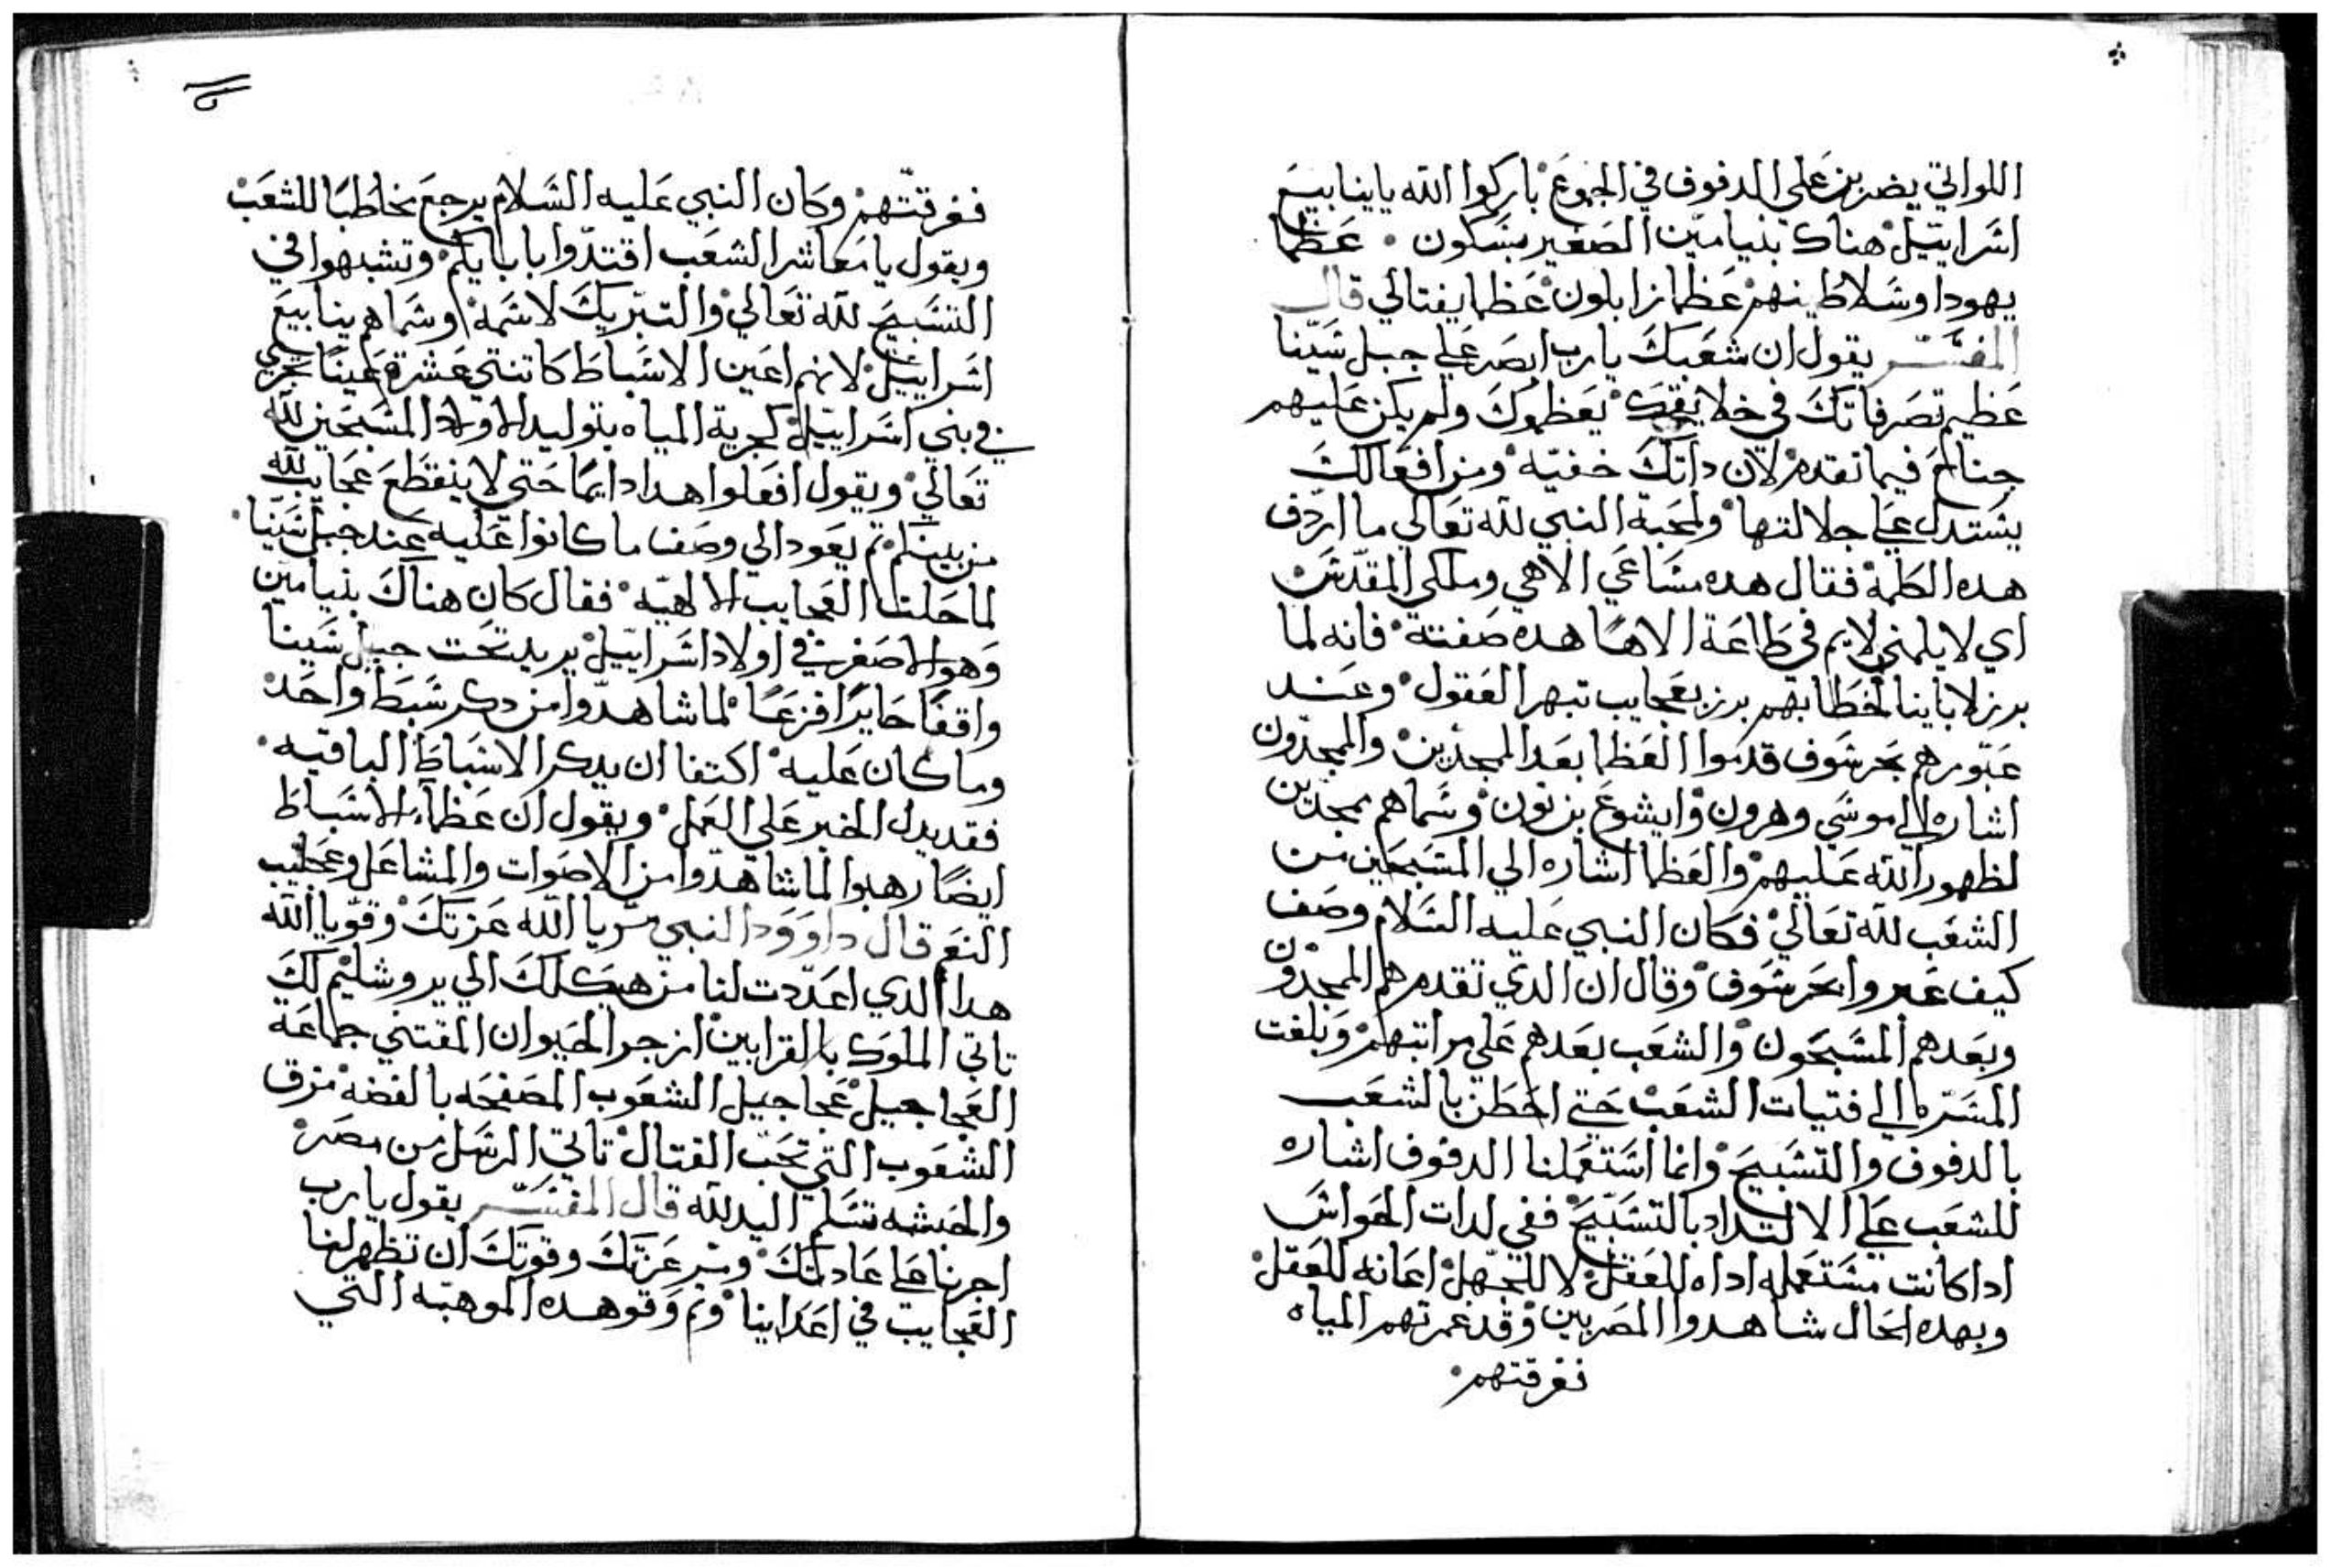 اللواتي يضربن علي الدفوف في الجموع باركوا الله ياينابيع
اسراييل هناك بنيامين الصغير بسكون عظما
يهودا وسلاطينهم عظما زابلون عظما يفتالي قال
المفسر يقول ان شعبك يارب ابصر علي جبل سينا
عظيم تصرفاتك في خلايقك يعظموك ولم يكن عليهم
جناح فيما تقدم لان داتك خفيه ومن افعالك
يستدل علي جلالتها ولمحبة النبي لله تعالي ما اردف
هده الكلمة فقال هده مساعي الاهي وملكي المقدس
اي لا يلمني لايم في طاعة الاها هده صفته فانه لما
برز لاباينا لخطابهم برز بعجايب تبهر العقول وعند
عبورهم بحر سوف قدموا العظما بعد الممجدين والممجدون
اشاره الي موسي وهرون وايشوع بن نون وسماهم ممجدين
لظهور الله عليهم والعظما اشاره الي المسبحين من
الشعب لله تعالي فكان النبي عليه السلام وصف
كيف عبروا بحر سوف وقال ان الدي تقدمهم الممجدون
وبعدهم المسبحون والشعب بعدهم علي مراتبهم وبلغت
المسره الي فتيات الشعب حتي احطن بالشعب
بالدفوف والتسبيح وانما استعملنا الدفوف اشاره
للشعب علي الالتداد بالتسبيح ففي لدات الحواس
ادا كانت مستعمله اداه للعقل لا للتجهل اعانه للعقل
وبهده الحال شاهدوا المصريين وقد غمرتهم المياه
فغرقتهم
فغرقتهم وكان النبي عليه السلام يرجع مخاطبا للشعب
ويقول يا معاشر الشعب اقتدوا بابايكم وتشبهوا في
التسبيح لله تعالي والتبريك لاسمه وسماهم ينابيع
اسراييل لانهم اعين الاسباط كاتنتي عشرة عينا تجري
في بني اسراييل كجرية المياه بتوليد الاولاد المسبحين لله
تعالي ويقول افعلوا هدا دايما حتي لا ينقطع عجايب الله
من بينكم تم يعود الي وصف ما كانوا عليه عند جبل سينا
لما حلت العجايب الالهيه فقال كان هناك بنيامين
وهو الاصغر في اولاد اسراييل يريد تحت جبل سينا
واقفا حايرا فزعا لما شاهدوا من دكر سبط واحد
وما كان عليه اكتفا ان يدكر الاسباط الباقيه
فقد يدل الخبر علي العمل ويقول ان عظما الاسباط
ايضا رهبوا لما شاهدوا من الاصوات والمشاعل وعجايب
النعم قال داوود النبي مر يا الله عزتك وقو يا الله
هدا الدي اعددت لنا من هيكلك الي يروشليم لك
تاتي الملوك بالقرابين ازجر الحيوان المقتني جماعة
العجاجيل عجاجيل الشعوب المصفحه بالفضه مزق
الشعوب التي تحب القتال تاتي الرسل من مصر
والحبشه تسلم اليد لله قال المفسر يقول يا رب
اجرنا علي عادتك ومر عزتك وقوتك ان تظهر لنا
العجايب في اعداينا وتم وقو هده الموهبه التي